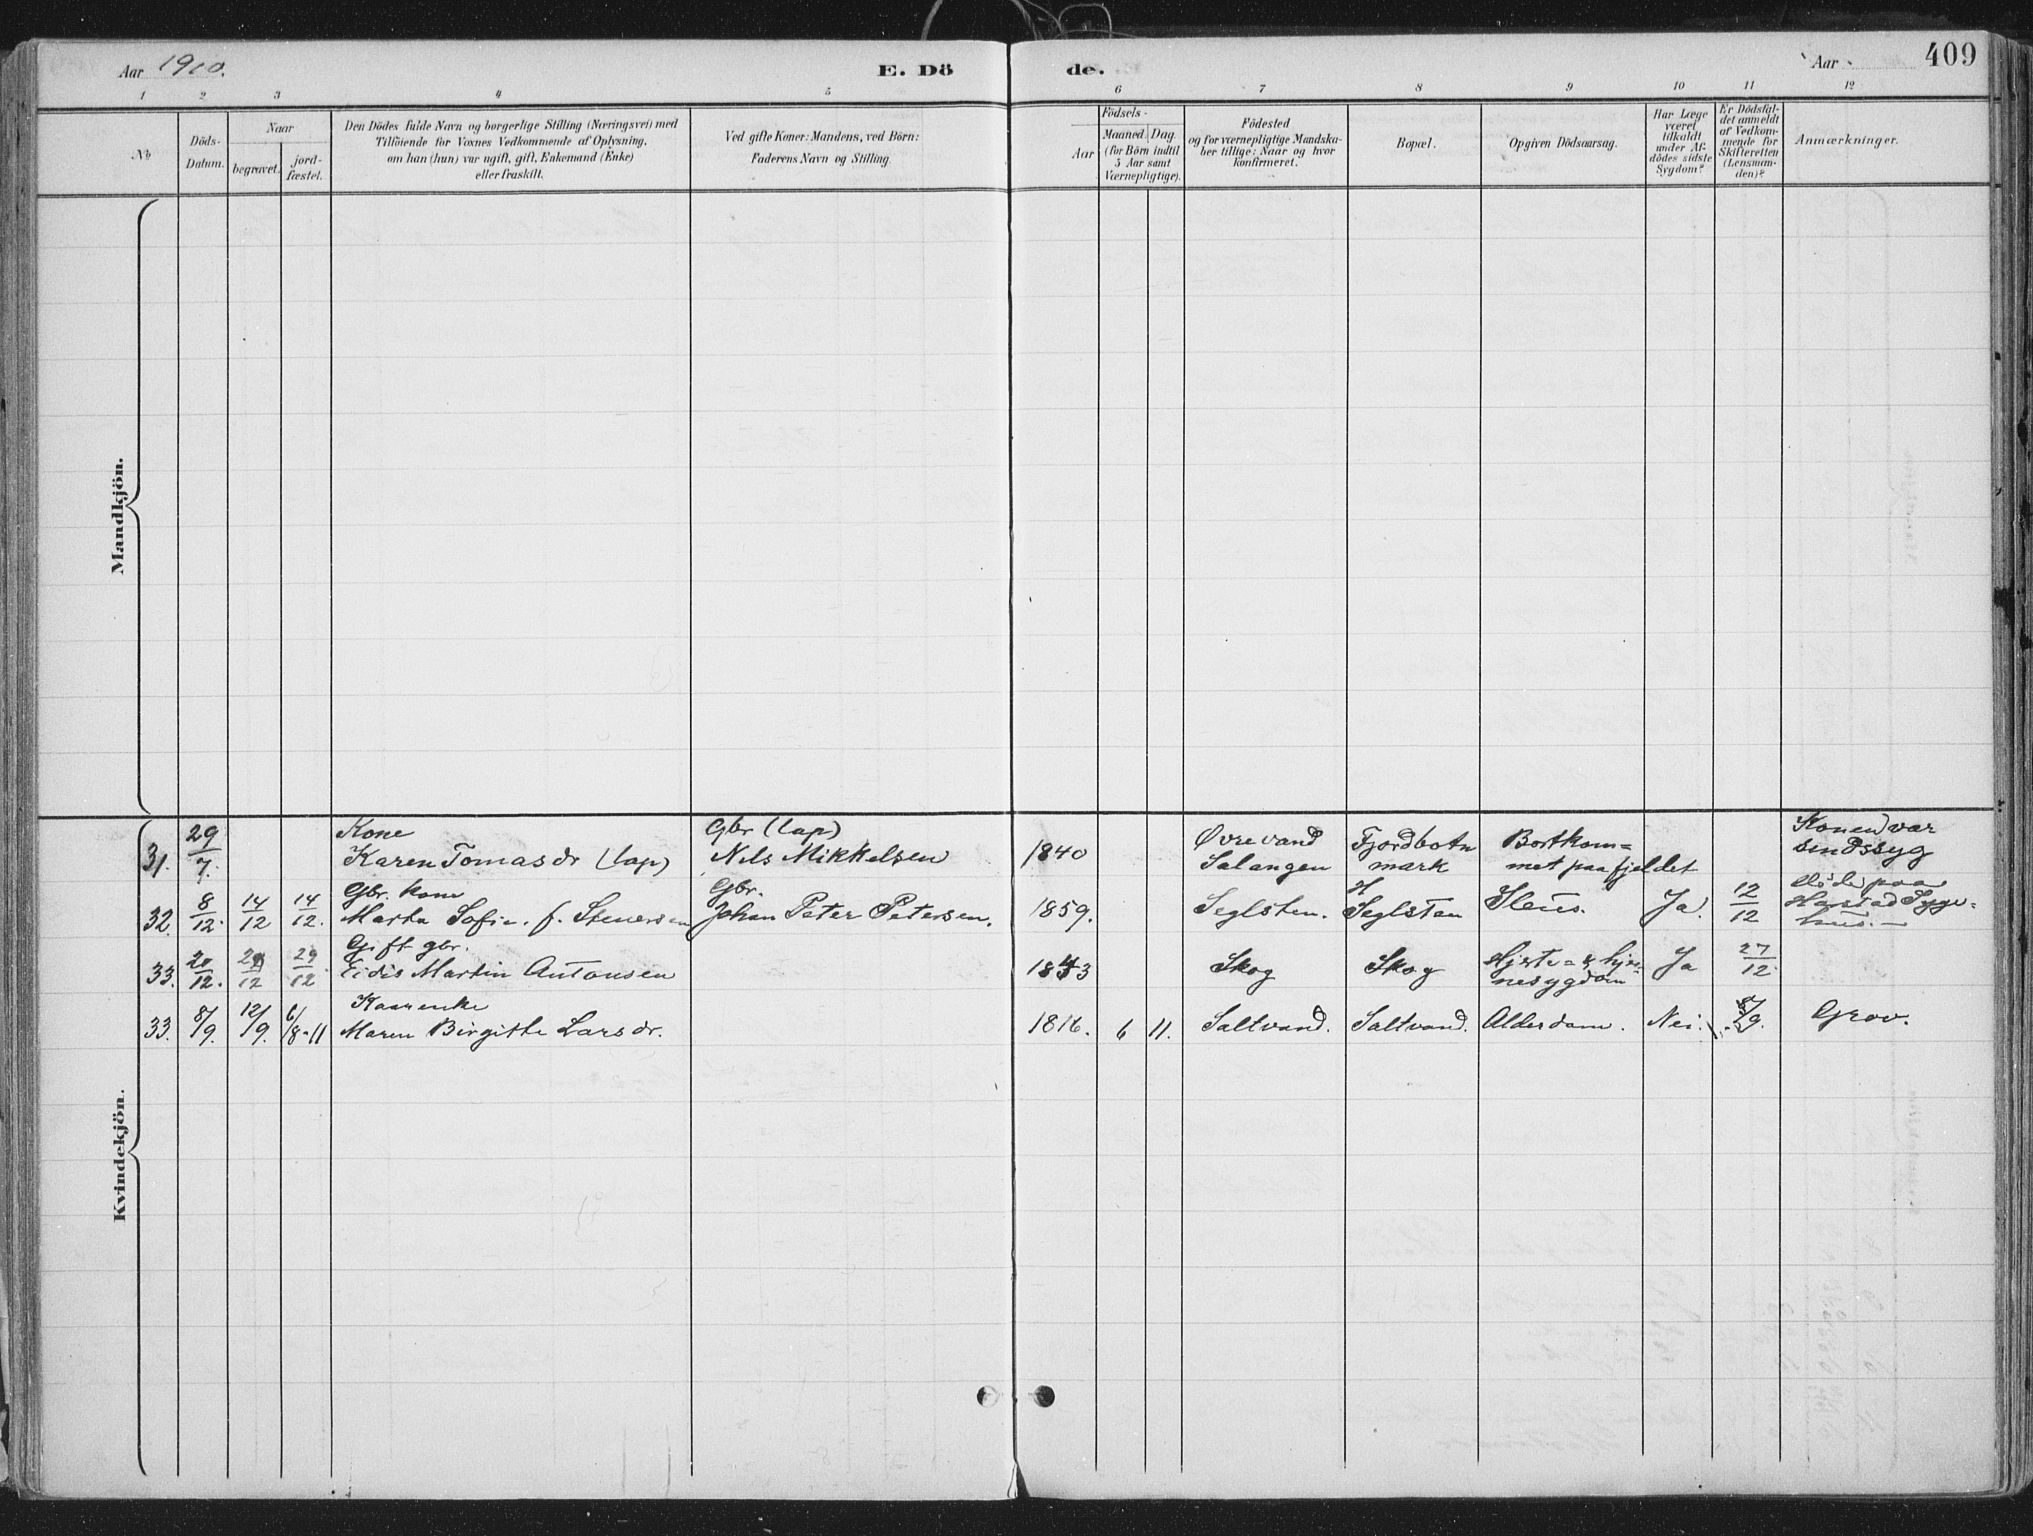 Aar 1910. E. Dö de. Aar 409
1 2 3 4 5 6 7 8 9 10 11 12
No
Döds-
Datum.
Naar
begravet.
jord-
fæstet.
Den Dödes fulde Navn og borgerlige Stilling (Næringsvei) med
Tilföiende for Voxnes Vedkommende af Oplysning,
om han (hun) var ugift, gift, Enkemand (Enke)
eller fraskilt.
Ved gifte Koner: Mandens, ved Börn:
Faderens Navn og Stilling.
Födsels-
Aar
Maaned. Dag.
(for Börn indtil
5 Aar samt
Værnepligtige).
Födested
og for værnepligtige Mandska-
ber tillige: Naar og hvor
konfirmeret.
Bopæl.
Opgiven Dödsaarsag.
Har Læge
været
tilkaldt
under Af-
dödes sidste
Sygdom?
Er Dödsfal-
det anmeldt
af Vedkom-
mende for
Skifteretten
(Lensman-
den)?
Anmærkninger.
Mandkjön.
Kvindekjön.
31. 29/7. Kone
Karen Tomasdr (lap)
Gbr (lap)
Nels Mikkelsen
1840
Øvrevand
Salangen
Fjordbotn
mark
Bortkom=
met paa fjeldet
Konen var
sindssyg
32. 8/12. 14/12 14/12. Gbr. kone
Marta Sofie f. Stenersen
Gbr.
Johan Peter Petersen.
1859.
Seglsten.
Seglsten
Ileus.
Ja.
12/12
Døde paa
Harstad Syge-
hus.
33. 20/12. 29/12 29/12 Gift gbr.
Eidis Martin Antonsen
1843
Skog
Skog
Hjerte- & hjer-
nesygdom
Ja
27/12.
33. 8/9. 12/9. 6/8-11 Kaarenke
Maren Birgitte Larsdr.
1816. 6 11. Saltvand. Saltvand. Alderdom. Nei. 8/9. Grov.